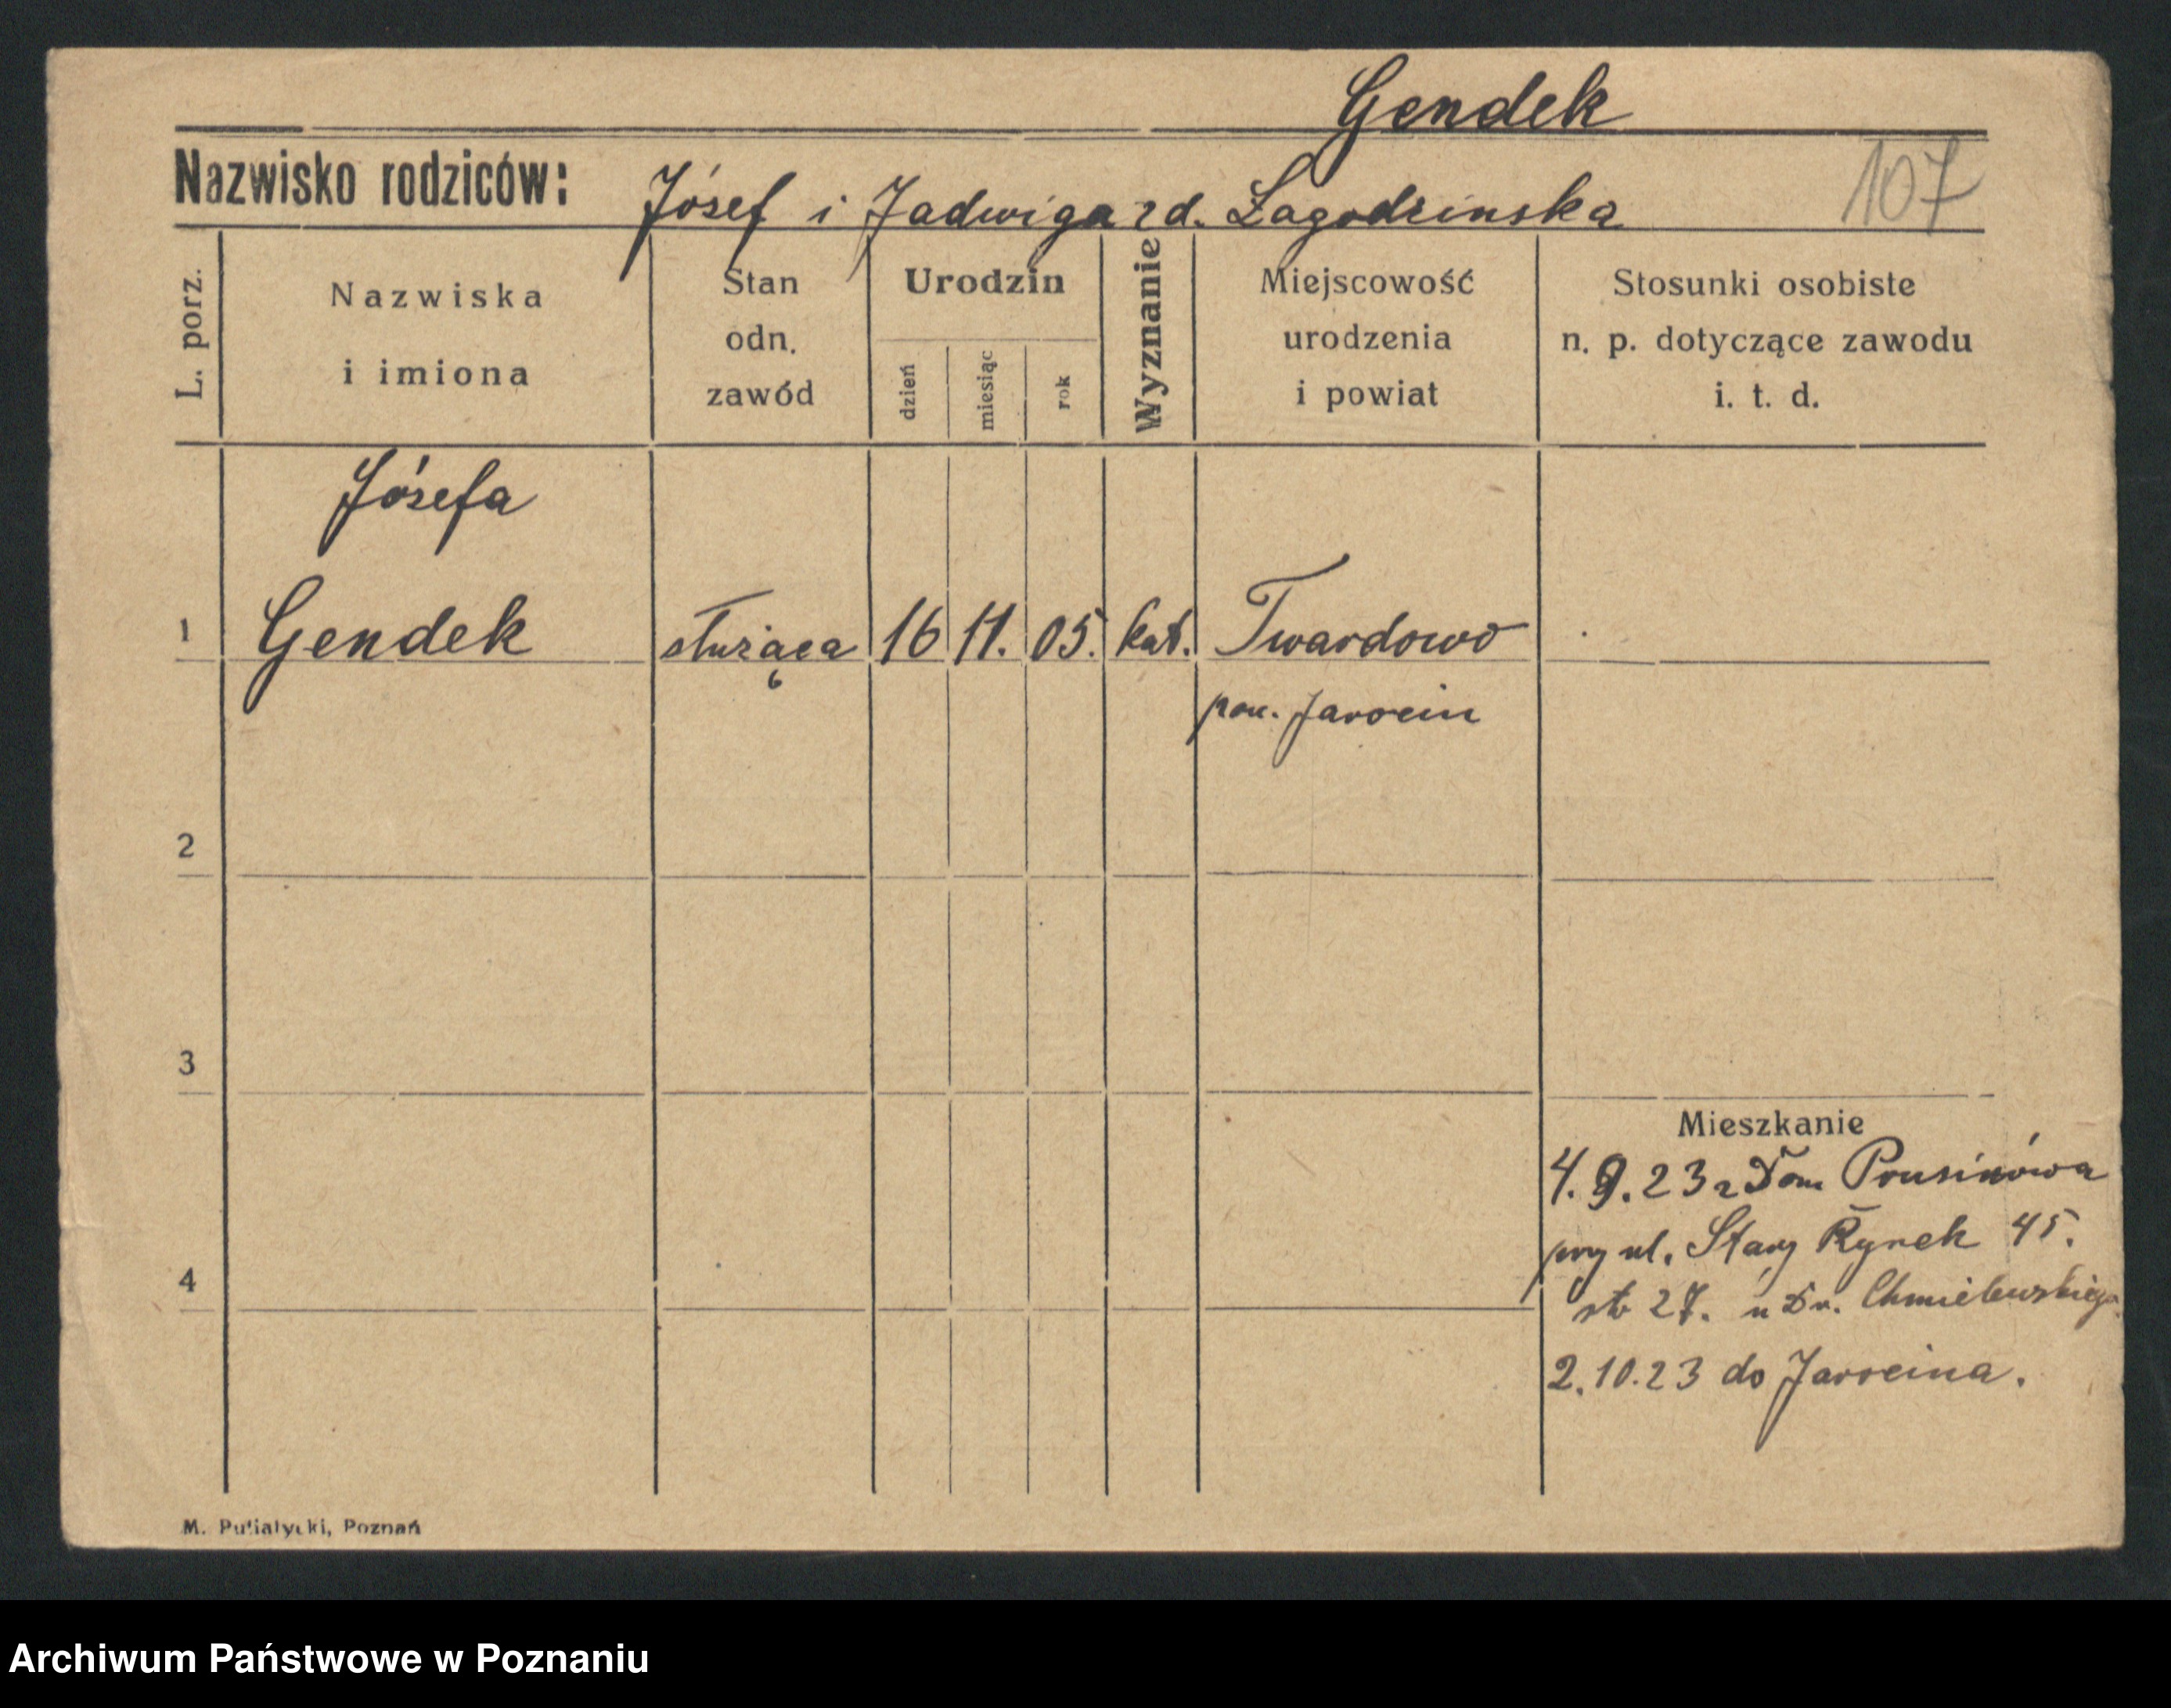 Gendek
Nazwisko rodziców: Józef i Jadwiga rd. Łagodzinska
107
L. porz.
Nazwiska
i imiona
Stan
odn.
zawód
Urodzin
dzień
miesiąc
rok
Wyznanie
Miejscowość
urodzenia
i powiat
Stosunki osobiste
n. p. dotyczące zawodu
i. t. d.
Józefa
1 Gendek służąca 16 11. 05. kat. Twardowo
pow. Jarocin
2
3
Mieszkanie
4. 9. 23 z Dom Prusinówa
przy ul. Stary Rynek 45.
4
str 27. u Dr. Chmielewskiego
2. 10. 23 do Jarocina.
M. Putiatycki, Poznań
Archiwum Państwowe w Poznaniu